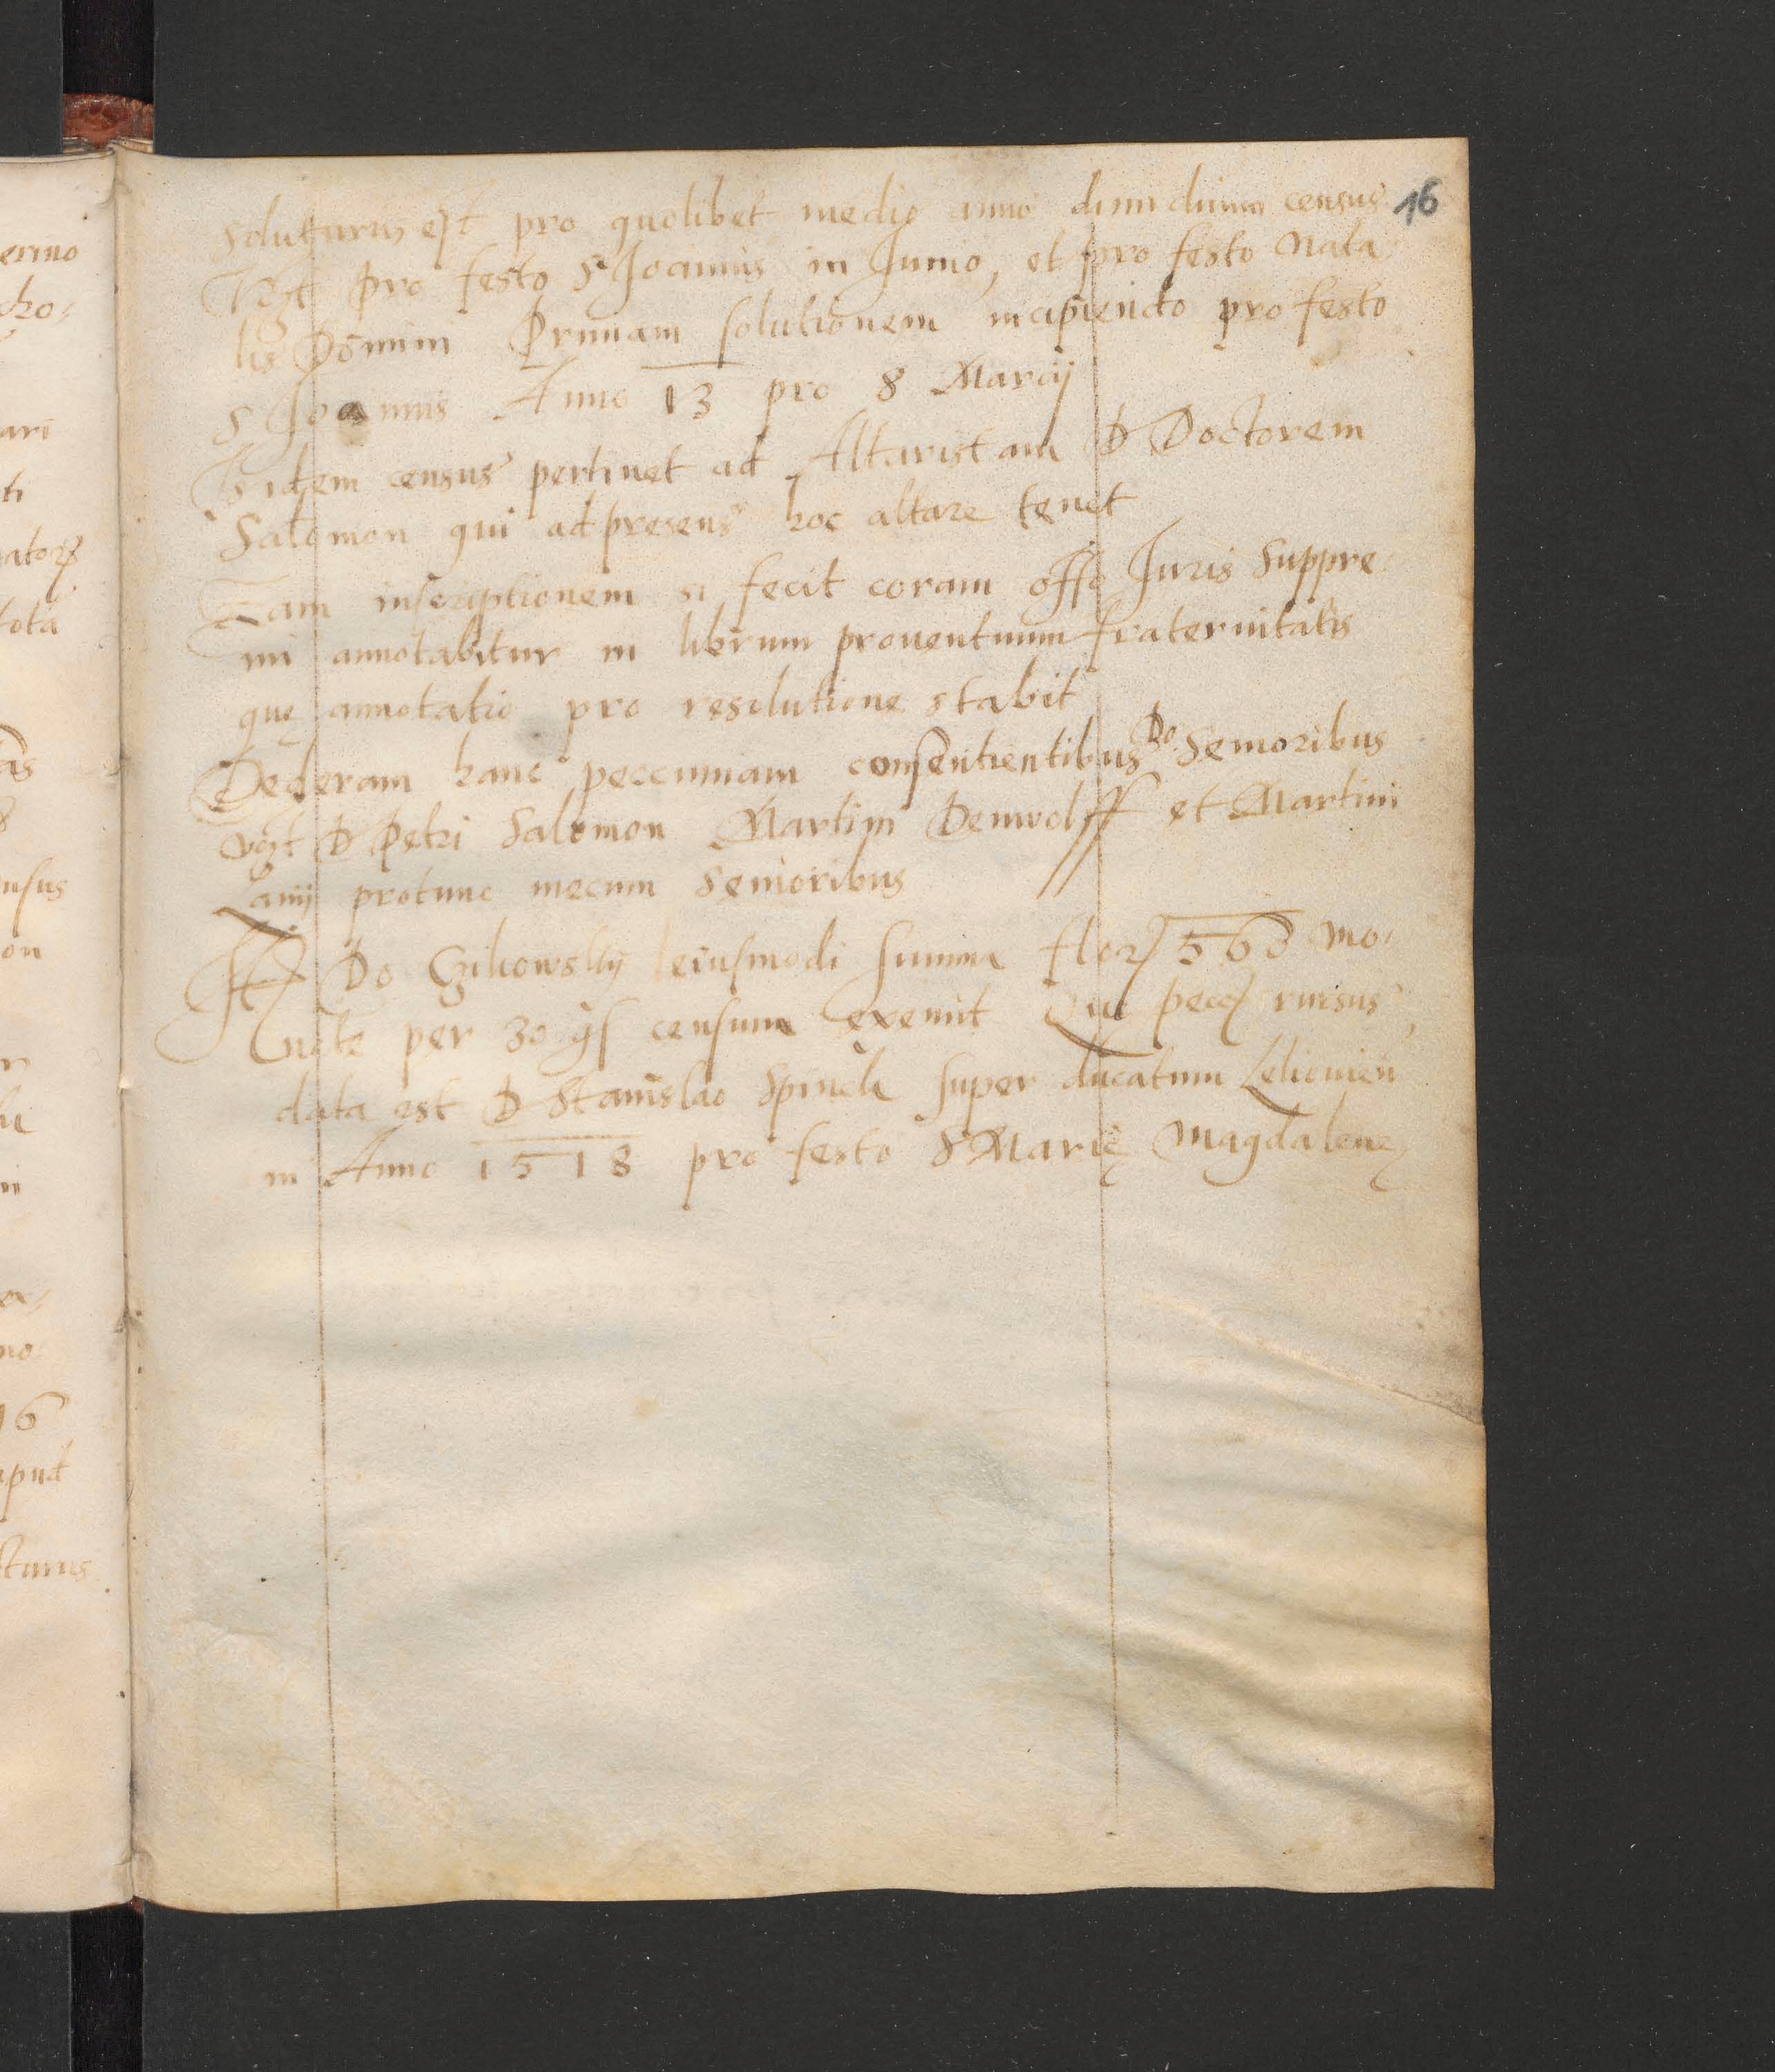 16
soluturus est pro quolibet medio anno dimidium census
Vꝫt pro festo S Joannis in Junio, et pro festo Nata
lis Domini Primam solutionem incipiendo pro festo
S Joannis Anno 13 pro 8 Marcij
Is idem census pertinet ad Altaristam D Doctorem
Salomon qui ad presens hoc altare tenet
Eam inscriptionem si fecit coram offo Juris Suppre
mi annotabitur in librum prouentuum fraternitatis
quę annotatio pro resolutione stabit
Dederam hanc peccuniam consentientibus Do Senioribus
vꝫt D Petri Salomon Martini Benwolff et Martini
Lanij protunc mecum Senioribus
It Do Czikowskij eiusmodi summa flor 563 mo
nete per 30 gs censum exemit Que pecc rursus
data est D Stanislao super ducatum
in Anno 1518 pro festo S Marię Magdalenę
erino
ho
ari
ti
ator
tota
as
nsus
on
r
ni
no
16
apud
cturus